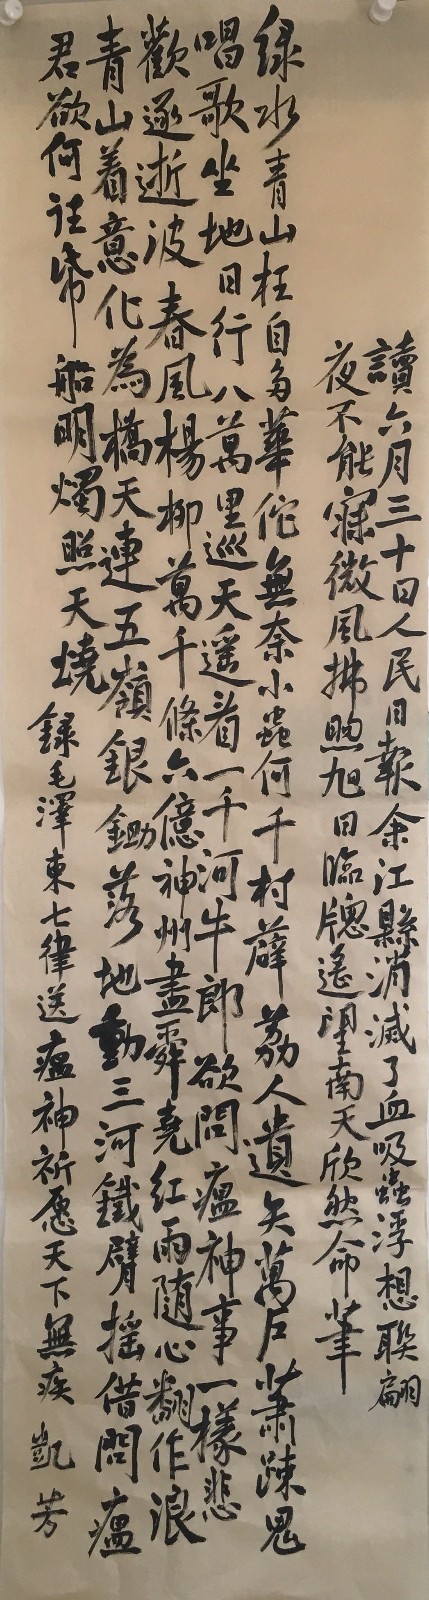 讀六月三十日人民日報余江縣消滅了血吸蟲浮想聯翩
夜不能寐微風拂煦旭日臨牕遙望南天欣然命筆
绿水青山枉自多華佗無奈小蟲何千村薜荔人遺矢萬戶蕭疎鬼
唱歌坐地日行八萬里巡天遥看一千河牛郎欲問瘟神事一樣悲
歡逐逝波春風楊柳萬千條六億神州盡舜堯紅雨随心翻作浪
青山着意化為橋天連五嶺銀鋤落地動三河鐵臂摇借問瘟
君欲何往帋船明燭照天燒 録毛澤東七律送瘟神祈愿天下無疾 凱芳